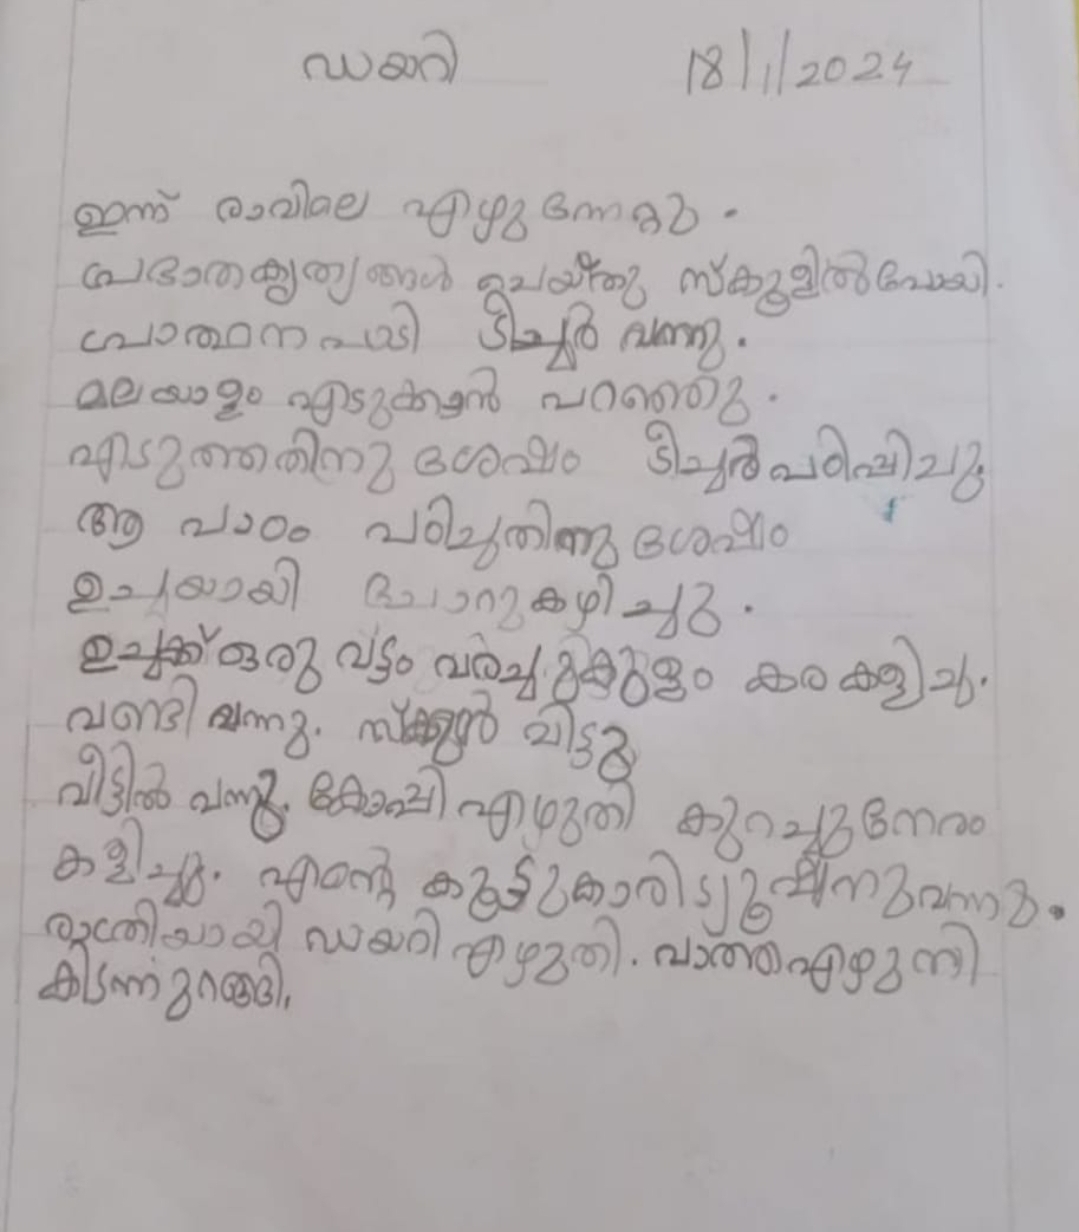 ഡയറി 18/1/2024
ഇന്ന് രാവിലെ എഴുന്നേറ്റു.
പ്രഭാതകൃത്യങ്ങൾ ചെയ്തു സ്കൂളിൽ പോയി.
പ്രാത്ഥന പാടി ടീച്ചർ വന്നു.
മലയാളം എടുക്കാൻ പറഞ്ഞു.
എടുത്തതിനു ശേഷം ടീച്ചർ പഠിപ്പിച്ചു.
ആ പാഠം പഠിച്ചതിന്നു ശേഷം
ഉച്ചയായി ചോറു കഴിച്ചു.
ഉച്ചക്ക് ഒരു വട്ടം വരച്ചു കുളം കര കളിച്ചു.
വണ്ടി വന്നു. സ്കൂൾ വിട്ടു
വീട്ടിൽ വന്നു. കോപ്പി എഴുതി കുറച്ചു നേരം
കളിച്ചു. എന്റെ കൂട്ടുകാരി ട്യൂഷിനു വന്നു.
രാത്രിയായി ഡയറി എഴുതി. വാത്ത എഴുതി
കിടന്നുറങ്ങി.